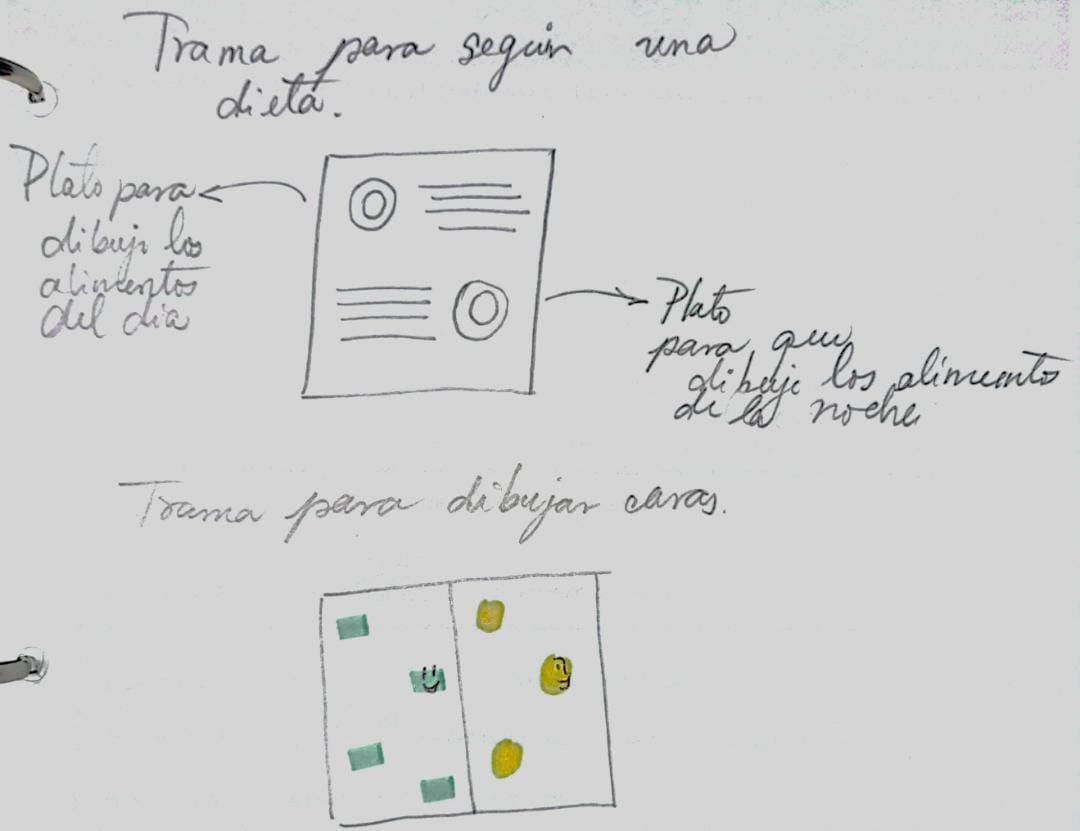 Trama para seguir una
dieta.
Plato para
dibuje los
alimentos
del dia
Plato
para que
dibuje los alimentos
de la noche
Trama para dibujar caras.